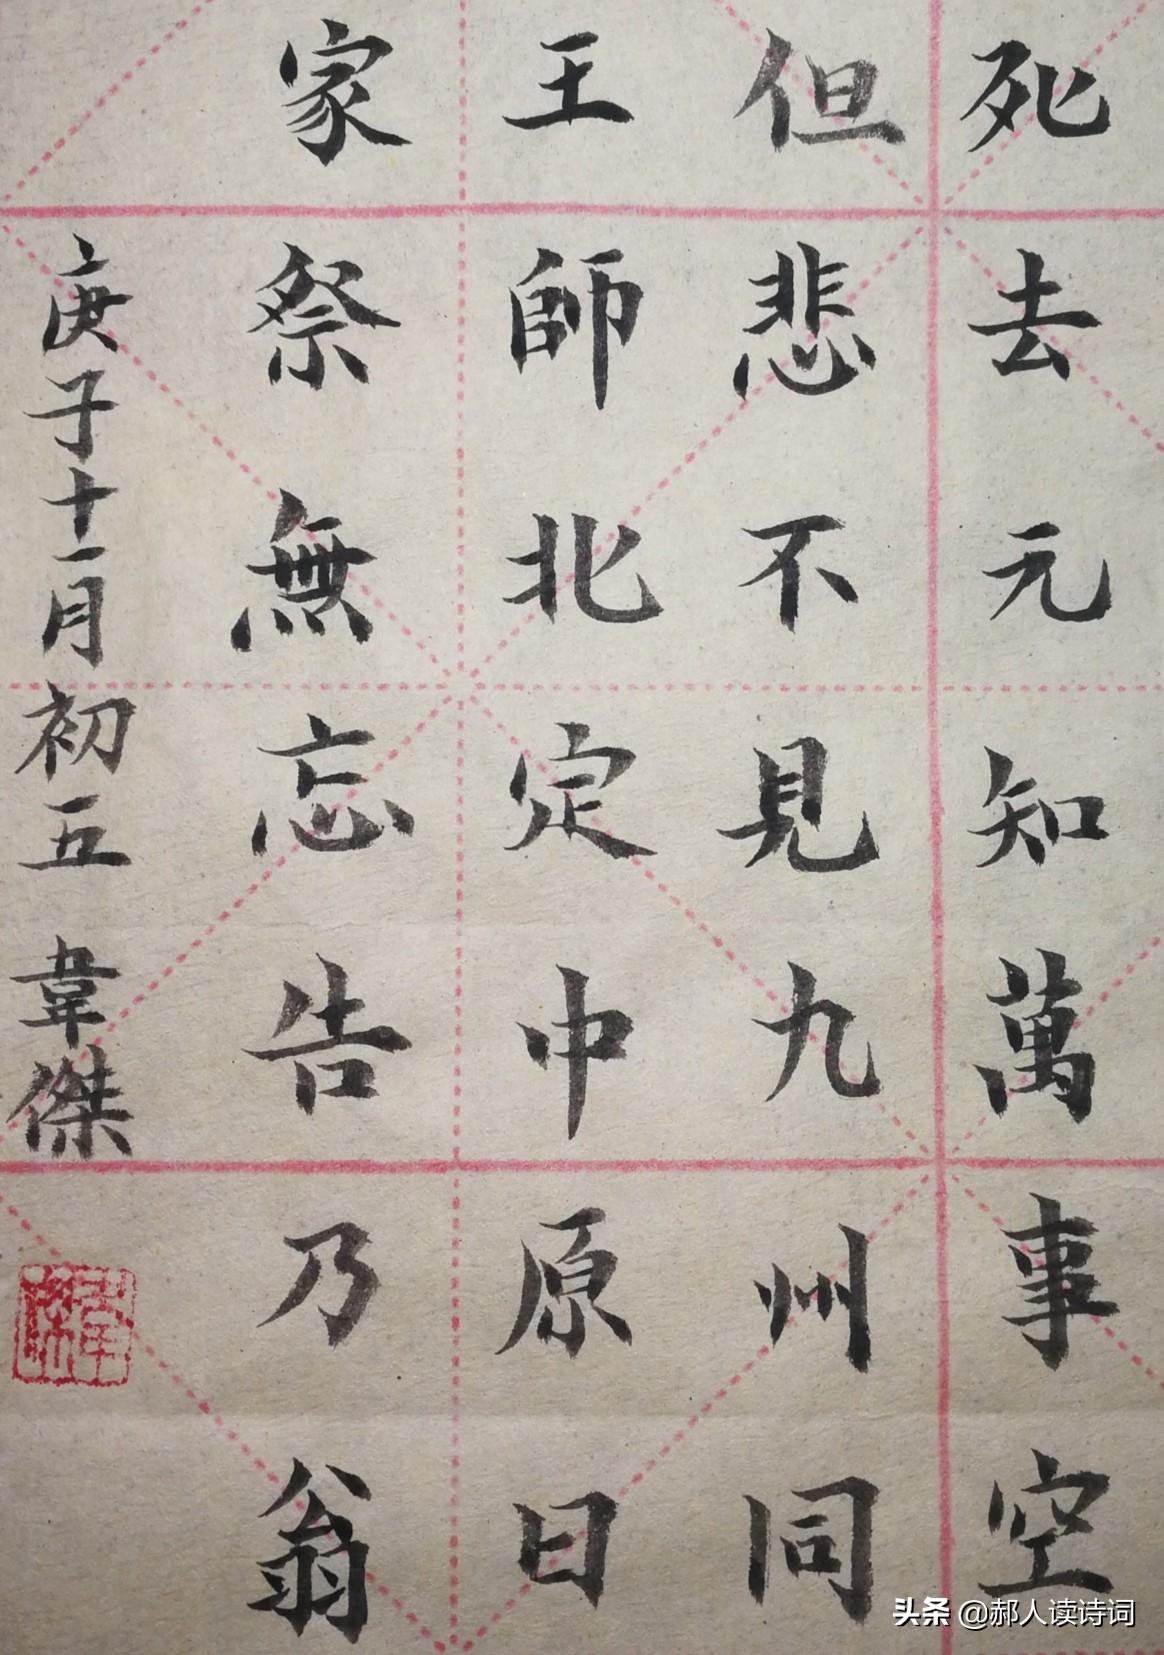 死去元知萬事空
但悲不見九州同
王師北定中原日
家祭無忘告乃翁
庚子十一月初五 韋傑
头条 @郝人读诗词